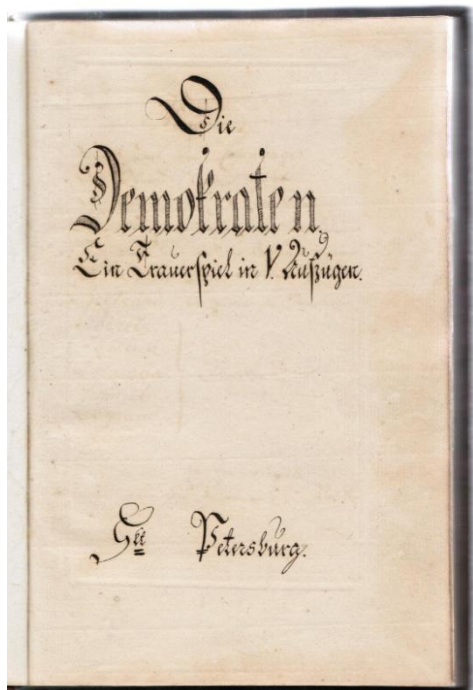 Die
Demokraten
Ein Trauerspiel in V. Aufzügen.
Skt Petersburg.